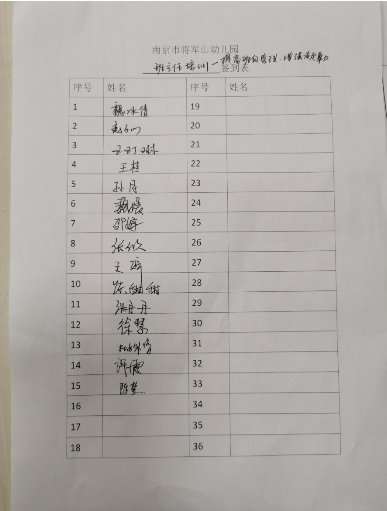 南京市将军山幼儿园
班主任培训—提高班级管理、增强凝聚力
签到表
序号 姓名 序号 姓名
1 魏冰倩 19
2 20
3 21
4 王桂 22
5 孙月 23
6 24
7 邵婷 25
8 张欣 26
9 王 27
10 陈甜甜 28
11 洪丹丹 29
12 徐慧 30
13 31
14 许儒 32
15 陈慧 33
16 34
17 35
18 36